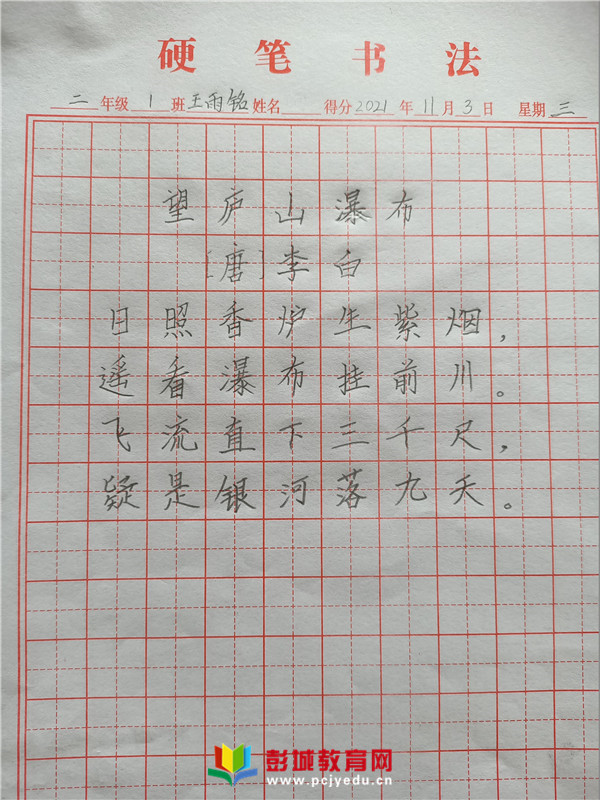 硬笔书法
二年级1班王雨铭姓名 得分2021年11月3日 星期三
望庐山瀑布
[唐]李白
日照香炉生紫烟，
遥看瀑布挂前川。
飞流直下三千尺，
疑是银河落九天。
彭城教育网
www.pcjyedu.cn